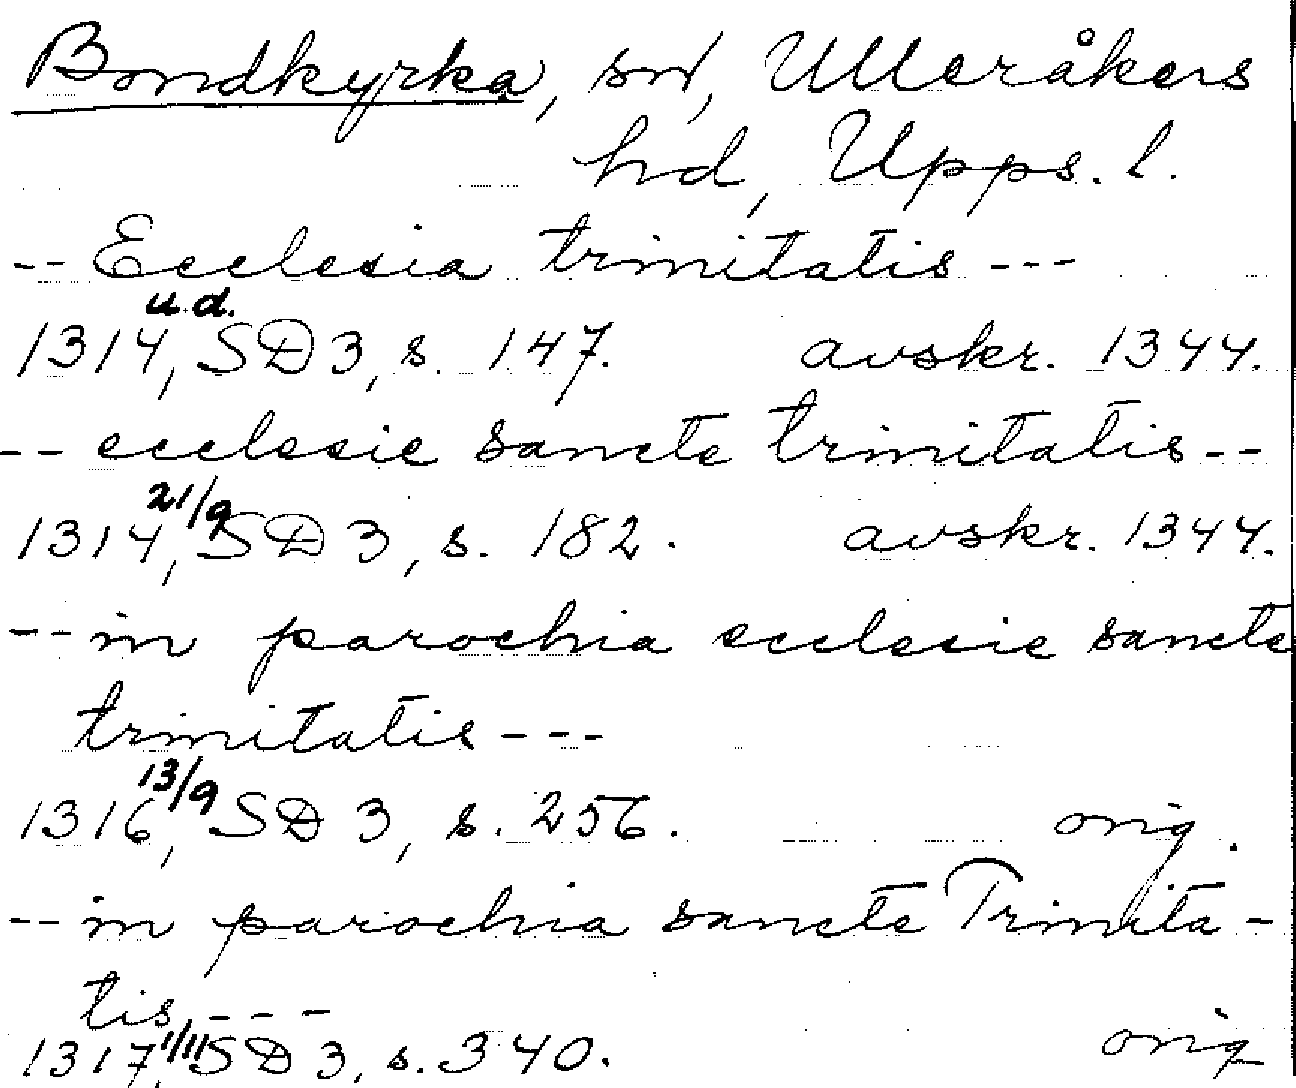 Bondkyrka, sn, Ulleråkers
hd, Upps. l.
-- Ecclesia trinitatis ---
u.d.
1314, SD 3, s. 147. avskr. 1344.
-- ecclesie sancte trinitatis --
21/9
1314, SD 3, s. 182. avskr. 1344.
-- in parochia ecclesie sancte
trinitatis ---
13/9
1316, SD 3, s. 256. orig.
-- in parochia sancte Trinita-
tis, ---
1317, 1/11 SD 3, s. 340. orig